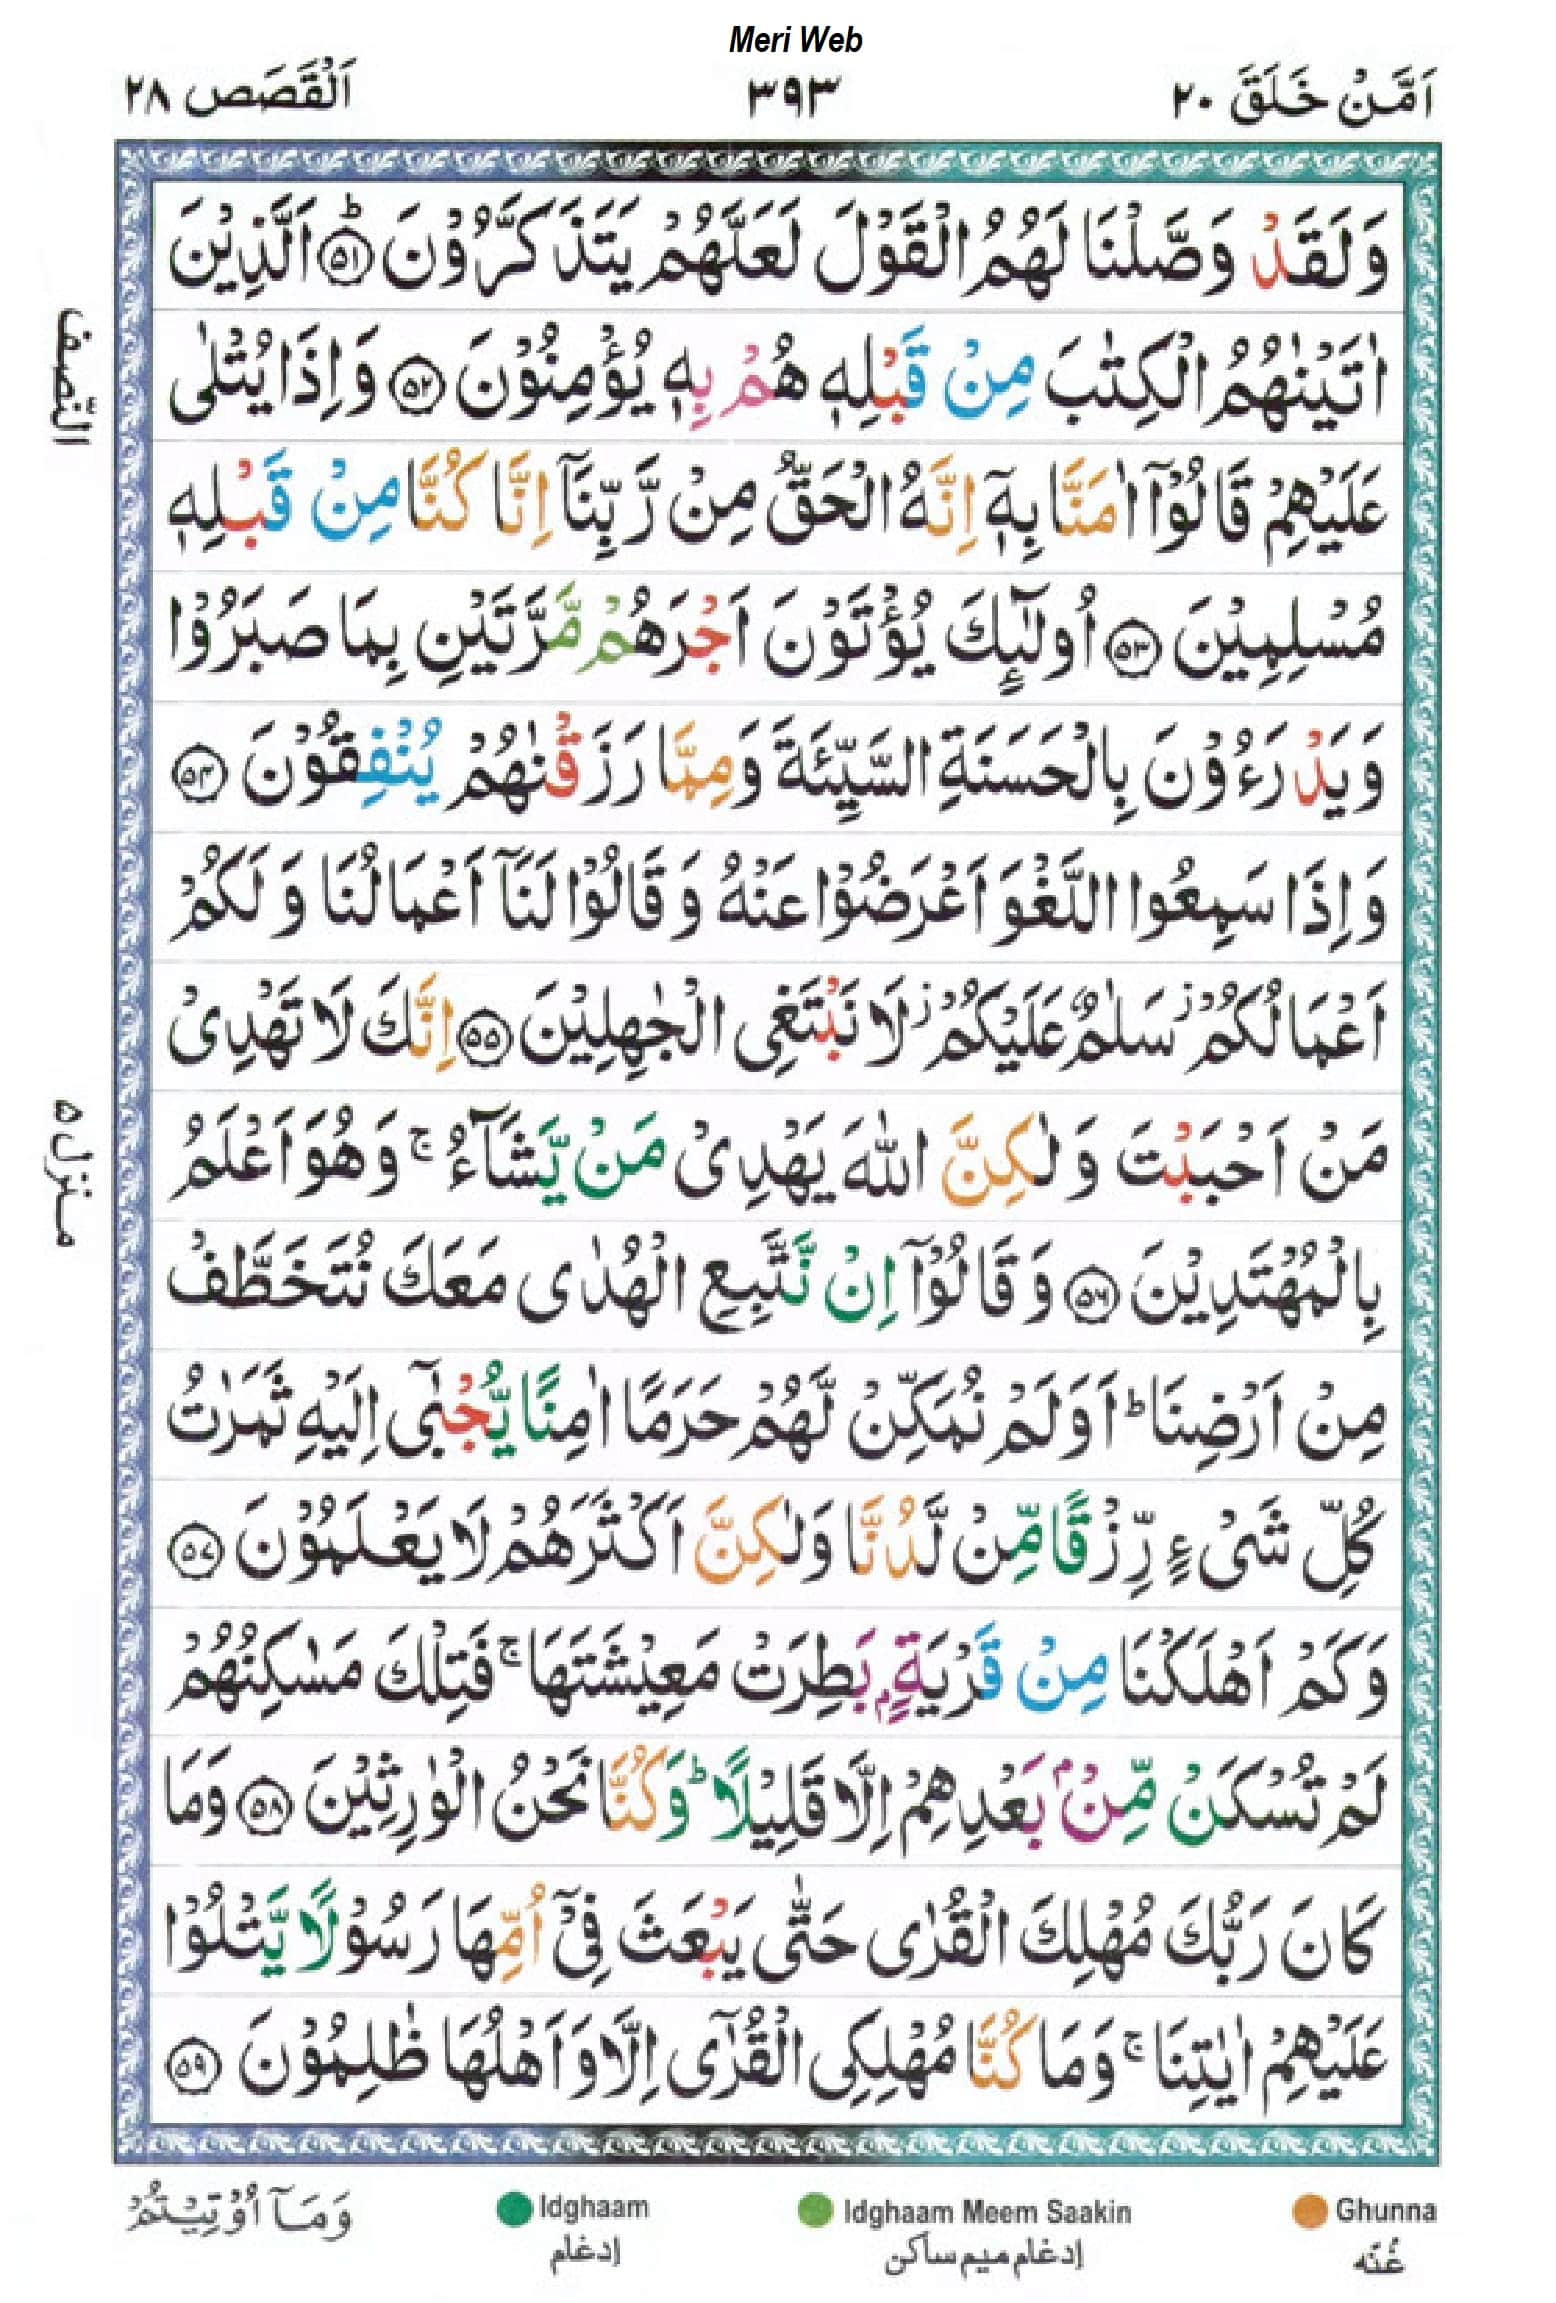 Meri Web
اَمَّنْ خَلَقَ ۲۰
۳۹۳
اَلْقَصَص ۲۸
وَلَقَدْ وَصَّلْنَا لَهُمُ الْقَوْلَ لَعَلَّهُمْ يَتَذَكَّرُوْنَ ؕ﴿۵۱﴾ اَلَّذِيْنَ
اٰتَيْنٰهُمُ الْكِتٰبَ مِنْ قَبْلِهٖ هُمْ بِهٖ يُؤْمِنُوْنَ ﴿۵۲﴾ وَاِذَا يُتْلٰى
عَلَيْهِمْ قَالُوْۤا اٰمَنَّا بِهٖۤ اِنَّهُ الْحَقُّ مِنْ رَّبِّنَاۤ اِنَّا كُنَّا مِنْ قَبْلِهٖ
مُسْلِمِيْنَ ﴿۵۳﴾ اُولٰٓئِكَ يُؤْتَوْنَ اَجْرَهُمْ مَّرَّتَيْنِ بِمَا صَبَرُوْا
وَيَدْرَءُوْنَ بِالْحَسَنَةِ السَّيِّئَةَ وَمِمَّا رَزَقْنٰهُمْ يُنْفِقُوْنَ ﴿۵۴﴾
وَاِذَا سَمِعُوا اللَّغْوَ اَعْرَضُوْا عَنْهُ وَقَالُوْا لَنَاۤ اَعْمَالُنَا وَلَكُمْ
اَعْمَالُكُمْ ز سَلٰمٌ عَلَيْكُمْ ز لَا نَبْتَغِى الْجٰهِلِيْنَ ﴿۵۵﴾ اِنَّكَ لَا تَهْدِىْ
مَنْ اَحْبَبْتَ وَلٰكِنَّ اللّٰهَ يَهْدِىْ مَنْ يَّشَآءُ ۚ وَهُوَ اَعْلَمُ
بِالْمُهْتَدِيْنَ ﴿۵۶﴾ وَقَالُوْۤا اِنْ نَّتَّبِعِ الْهُدٰى مَعَكَ نُتَخَطَّفْ
مِنْ اَرْضِنَا ؕ اَوَلَمْ نُمَكِّنْ لَّهُمْ حَرَمًا اٰمِنًا يُّجْبٰۤى اِلَيْهِ ثَمَرٰتُ
كُلِّ شَىْءٍ رِّزْقًا مِّنْ لَّدُنَّا وَلٰكِنَّ اَكْثَرَهُمْ لَا يَعْلَمُوْنَ ﴿۵۷﴾
وَكَمْ اَهْلَكْنَا مِنْ قَرْيَةٍۭ بَطِرَتْ مَعِيْشَتَهَا ۚ فَتِلْكَ مَسٰكِنُهُمْ
لَمْ تُسْكَنْ مِّنْۢ بَعْدِهِمْ اِلَّا قَلِيْلًا ؕ وَكُنَّا نَحْنُ الْوٰرِثِيْنَ ﴿۵۸﴾ وَمَا
كَانَ رَبُّكَ مُهْلِكَ الْقُرٰى حَتّٰى يَبْعَثَ فِىْۤ اُمِّهَا رَسُوْلًا يَّتْلُوْا
عَلَيْهِمْ اٰيٰتِنَا ۚ وَمَا كُنَّا مُهْلِكِى الْقُرٰٓى اِلَّا وَاَهْلُهَا ظٰلِمُوْنَ ﴿۵۹﴾
النّصف
منزل ۵
Ghunna
غُنّه
Idghaam Meem Saakin
إدغام ميم ساكن
Idghaam
إدغام
وَمَاۤ اُوْتِيْتُمْ